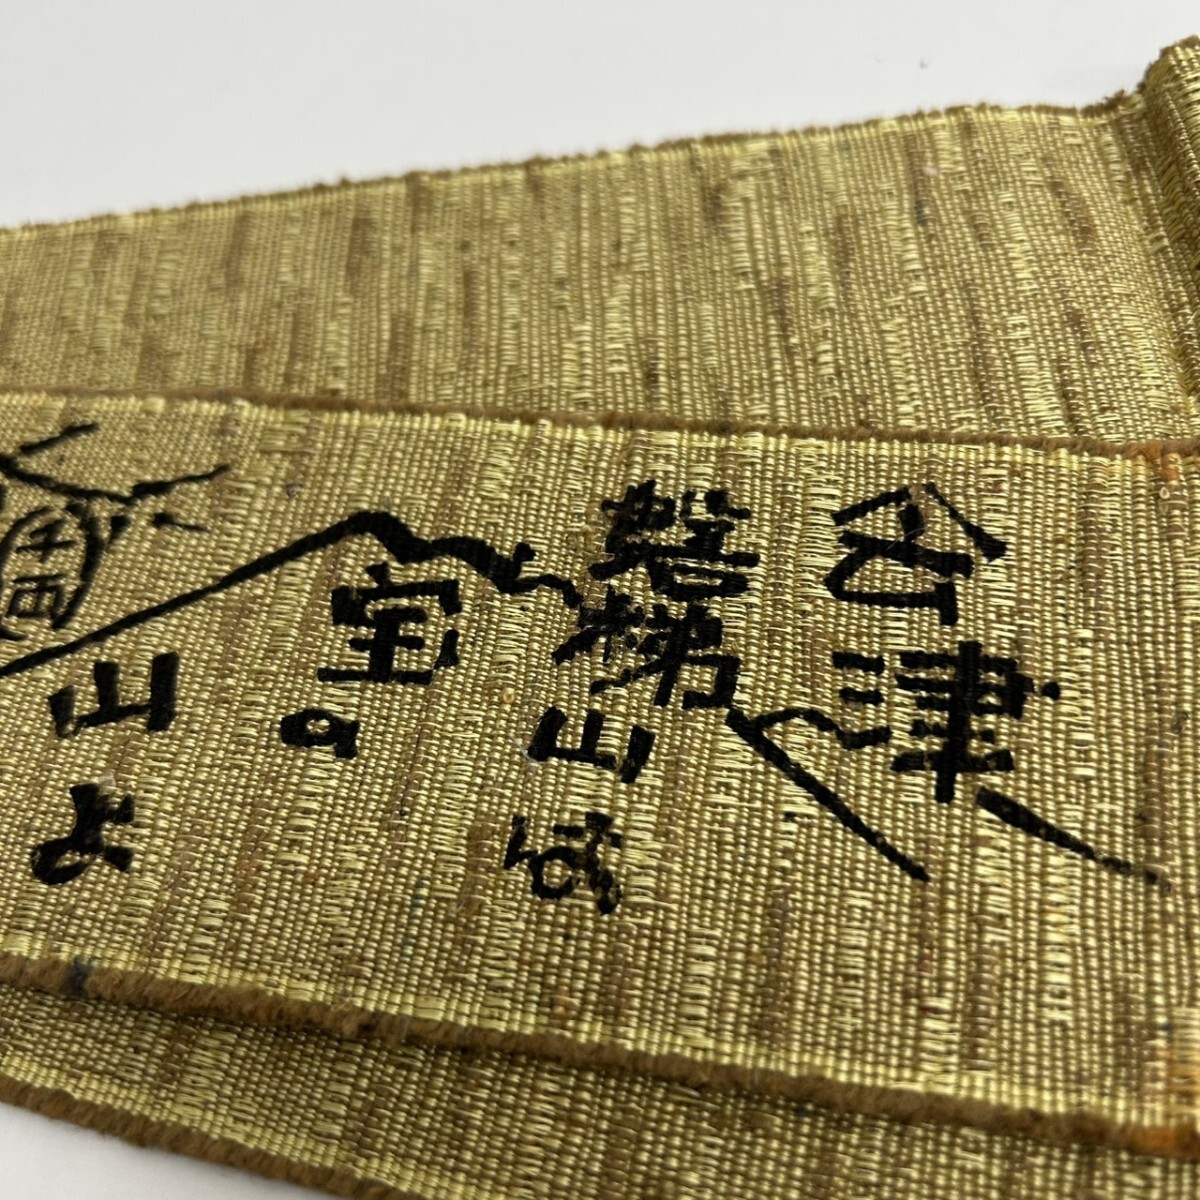 会津
磐梯山は
宝の
山よ
千両